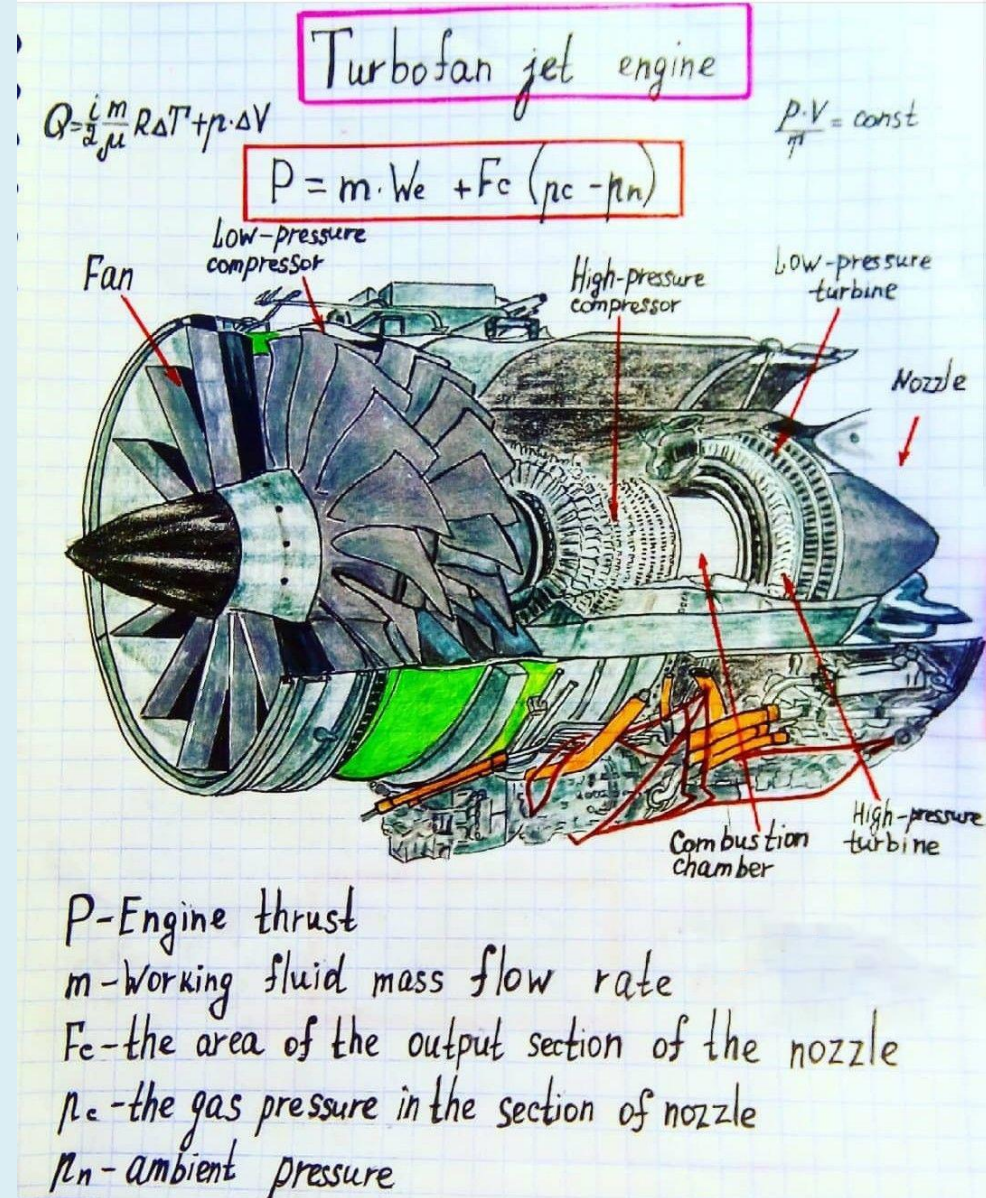 Turbofan jet engine
Q=i/2 m/μ RΔT+p·ΔV
P·V/T = const
P = m·We + Fc (pc - pn)
Low-pressure
compressor
Fan
High-pressure
compressor
Low-pressure
turbine
Nozzle
Combustion
chamber
High-pressure
turbine
P-Engine thrust
m-Working fluid mass flow rate
Fc-the area of the output section of the nozzle
pc-the gas pressure in the section of nozzle
pn-ambient pressure